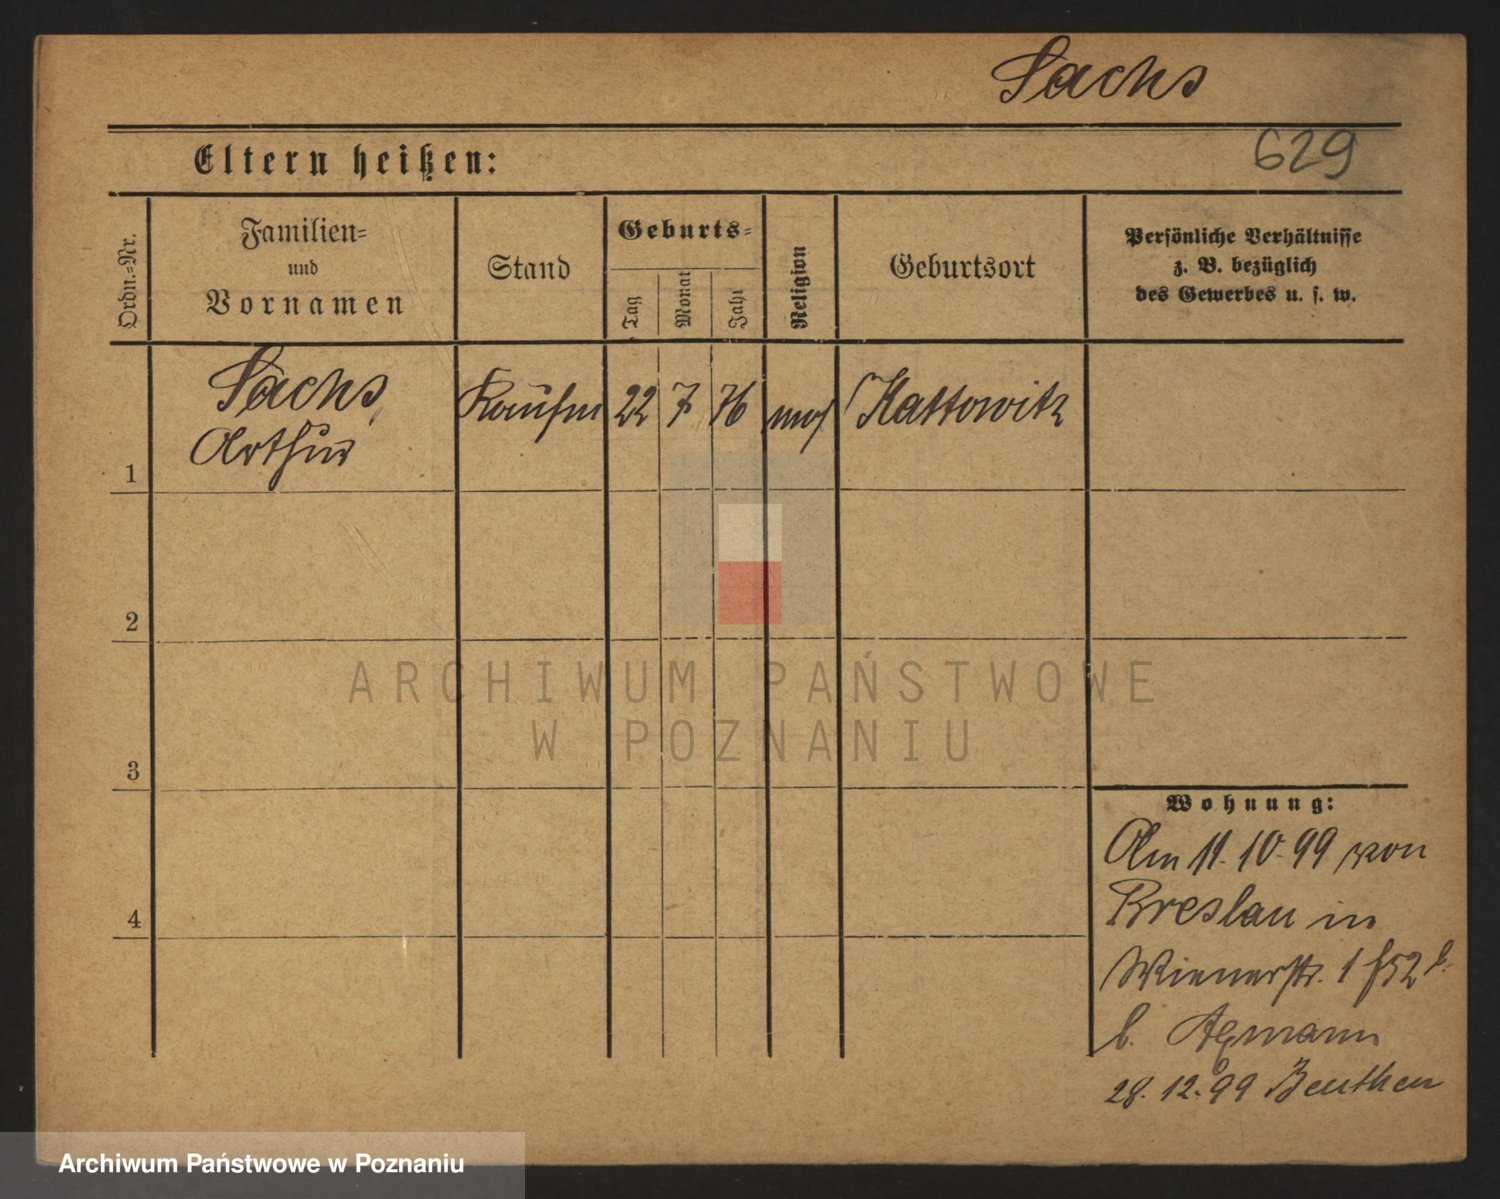 Sachs
629
Eltern heißen:
Ordn.-Nr.
Familien-
und
Vornamen
Stand
Geburts-
Tag
Monat
Jahr
Religion
Geburtsort
Persönliche Verhältnisse
z. B. bezüglich
des Gewerbes u. s. w.
1
Sachs,
Arthur
Kaufm
22
7
76
mos
Kattowitz
2
3
4
ARCHIWUM PAŃSTWOWE
W POZNANIU
Wohnung:
Am 11.10.99 von
Breslau in
Wienerstr. 1
b.
28.12.99 Beuthen
Archiwum Państwowe w Poznaniu